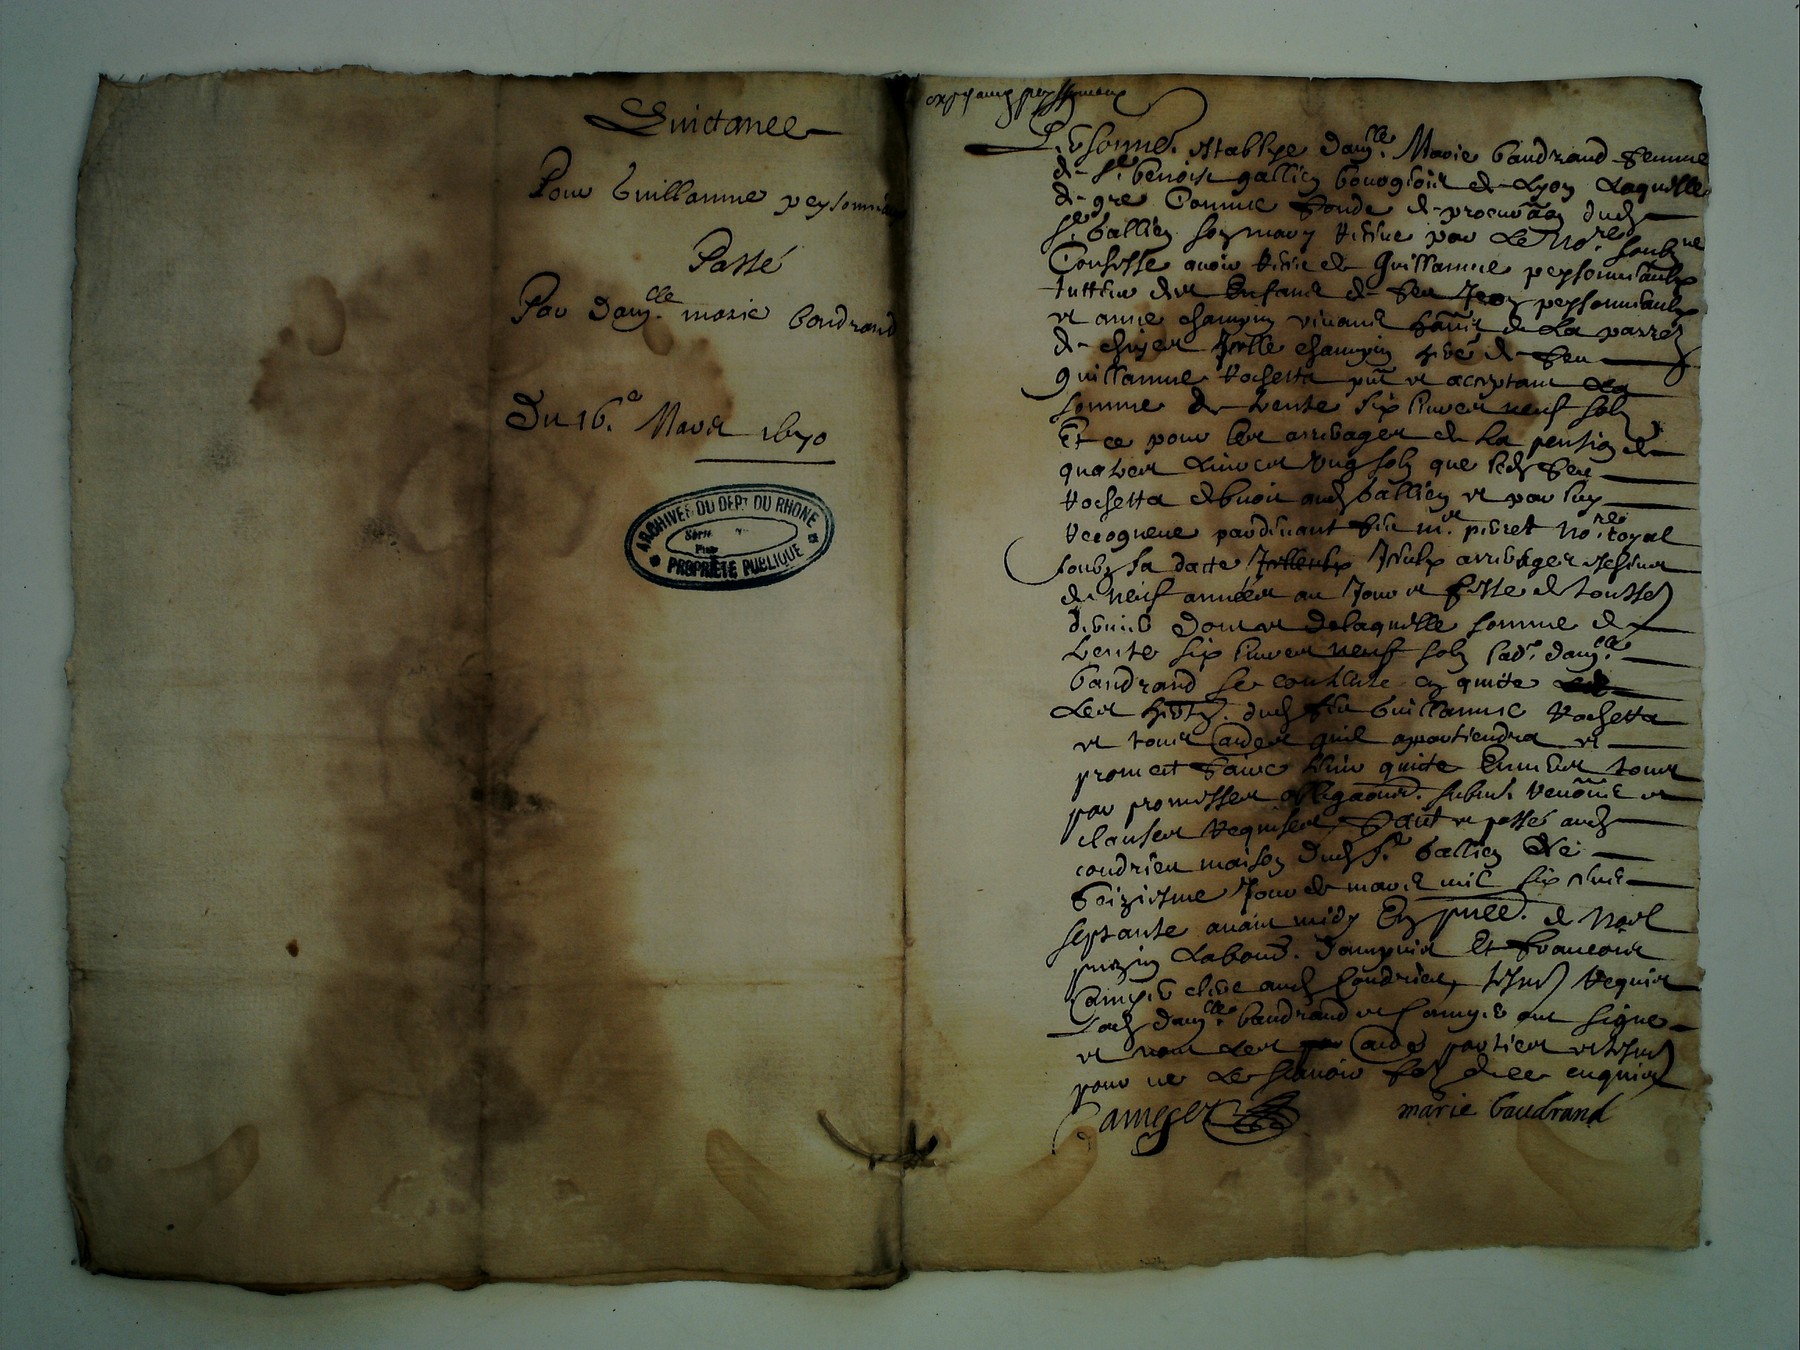 Quictance
Pour Guillaume peysonnie
Passé
Par Dam.lle marie baudrand
Du 16.e Mars 1670
ARCHIVES DU DEPT DU RHONE
PROPRIÉTÉ PUBLIQUE
Personne. establye dam.lle Marie baudrand femme
de Sr. benoist gallien bourgeois de Lyon Laquelle
de gré Comme fondé de procuraõn dud
Sr. Gallien son mary receue par Le No.re soubz.né
Confesse avoir receu de Guillaume peysonniaulx
tutteur des Enfans de feu Jean peysonniaulx
et anne champin vivans de La parre
de Icelle champin de feu
guillaume Rochetta pñt et acceptant La
somme de trente six livres neuf solz
Et ce pour les arreages de La pension de
quatres Livres Ung solz que led feu
Rochetta debvoit aud Gallien et par luy
recogneue pardevant feu m.e pierret No.re royal
soubz sa datte Iceulx arreages escheus
de neuf années au Jour et feste de Toussz
dernier dont et de laquelle somme de
trente six livres neuf solz lad. dam.lle
baudrand se contente en quite
Les dud feu Guillaume Rochetta
et tous aultres quil apartiendra et
promet faire tenir quitte Envers tous
par promesses obligaõns. submis. renõns et
clauses requises, faict et passé aud
condrieu maison dud Sr. Gallien Le
seiziesme Jour de mars mil six cens
septante avant midy En pñce. de Noel
Labour. d'ampuis Et francois
Cameyer clerc aud Condrieu, tesmz requis
Lad dam.lle baudrand et Cameyer ont signe
et non Les aultres parties et tesmz
pour ne Le scavoir de ce enquis
Cameyer marie baudrand